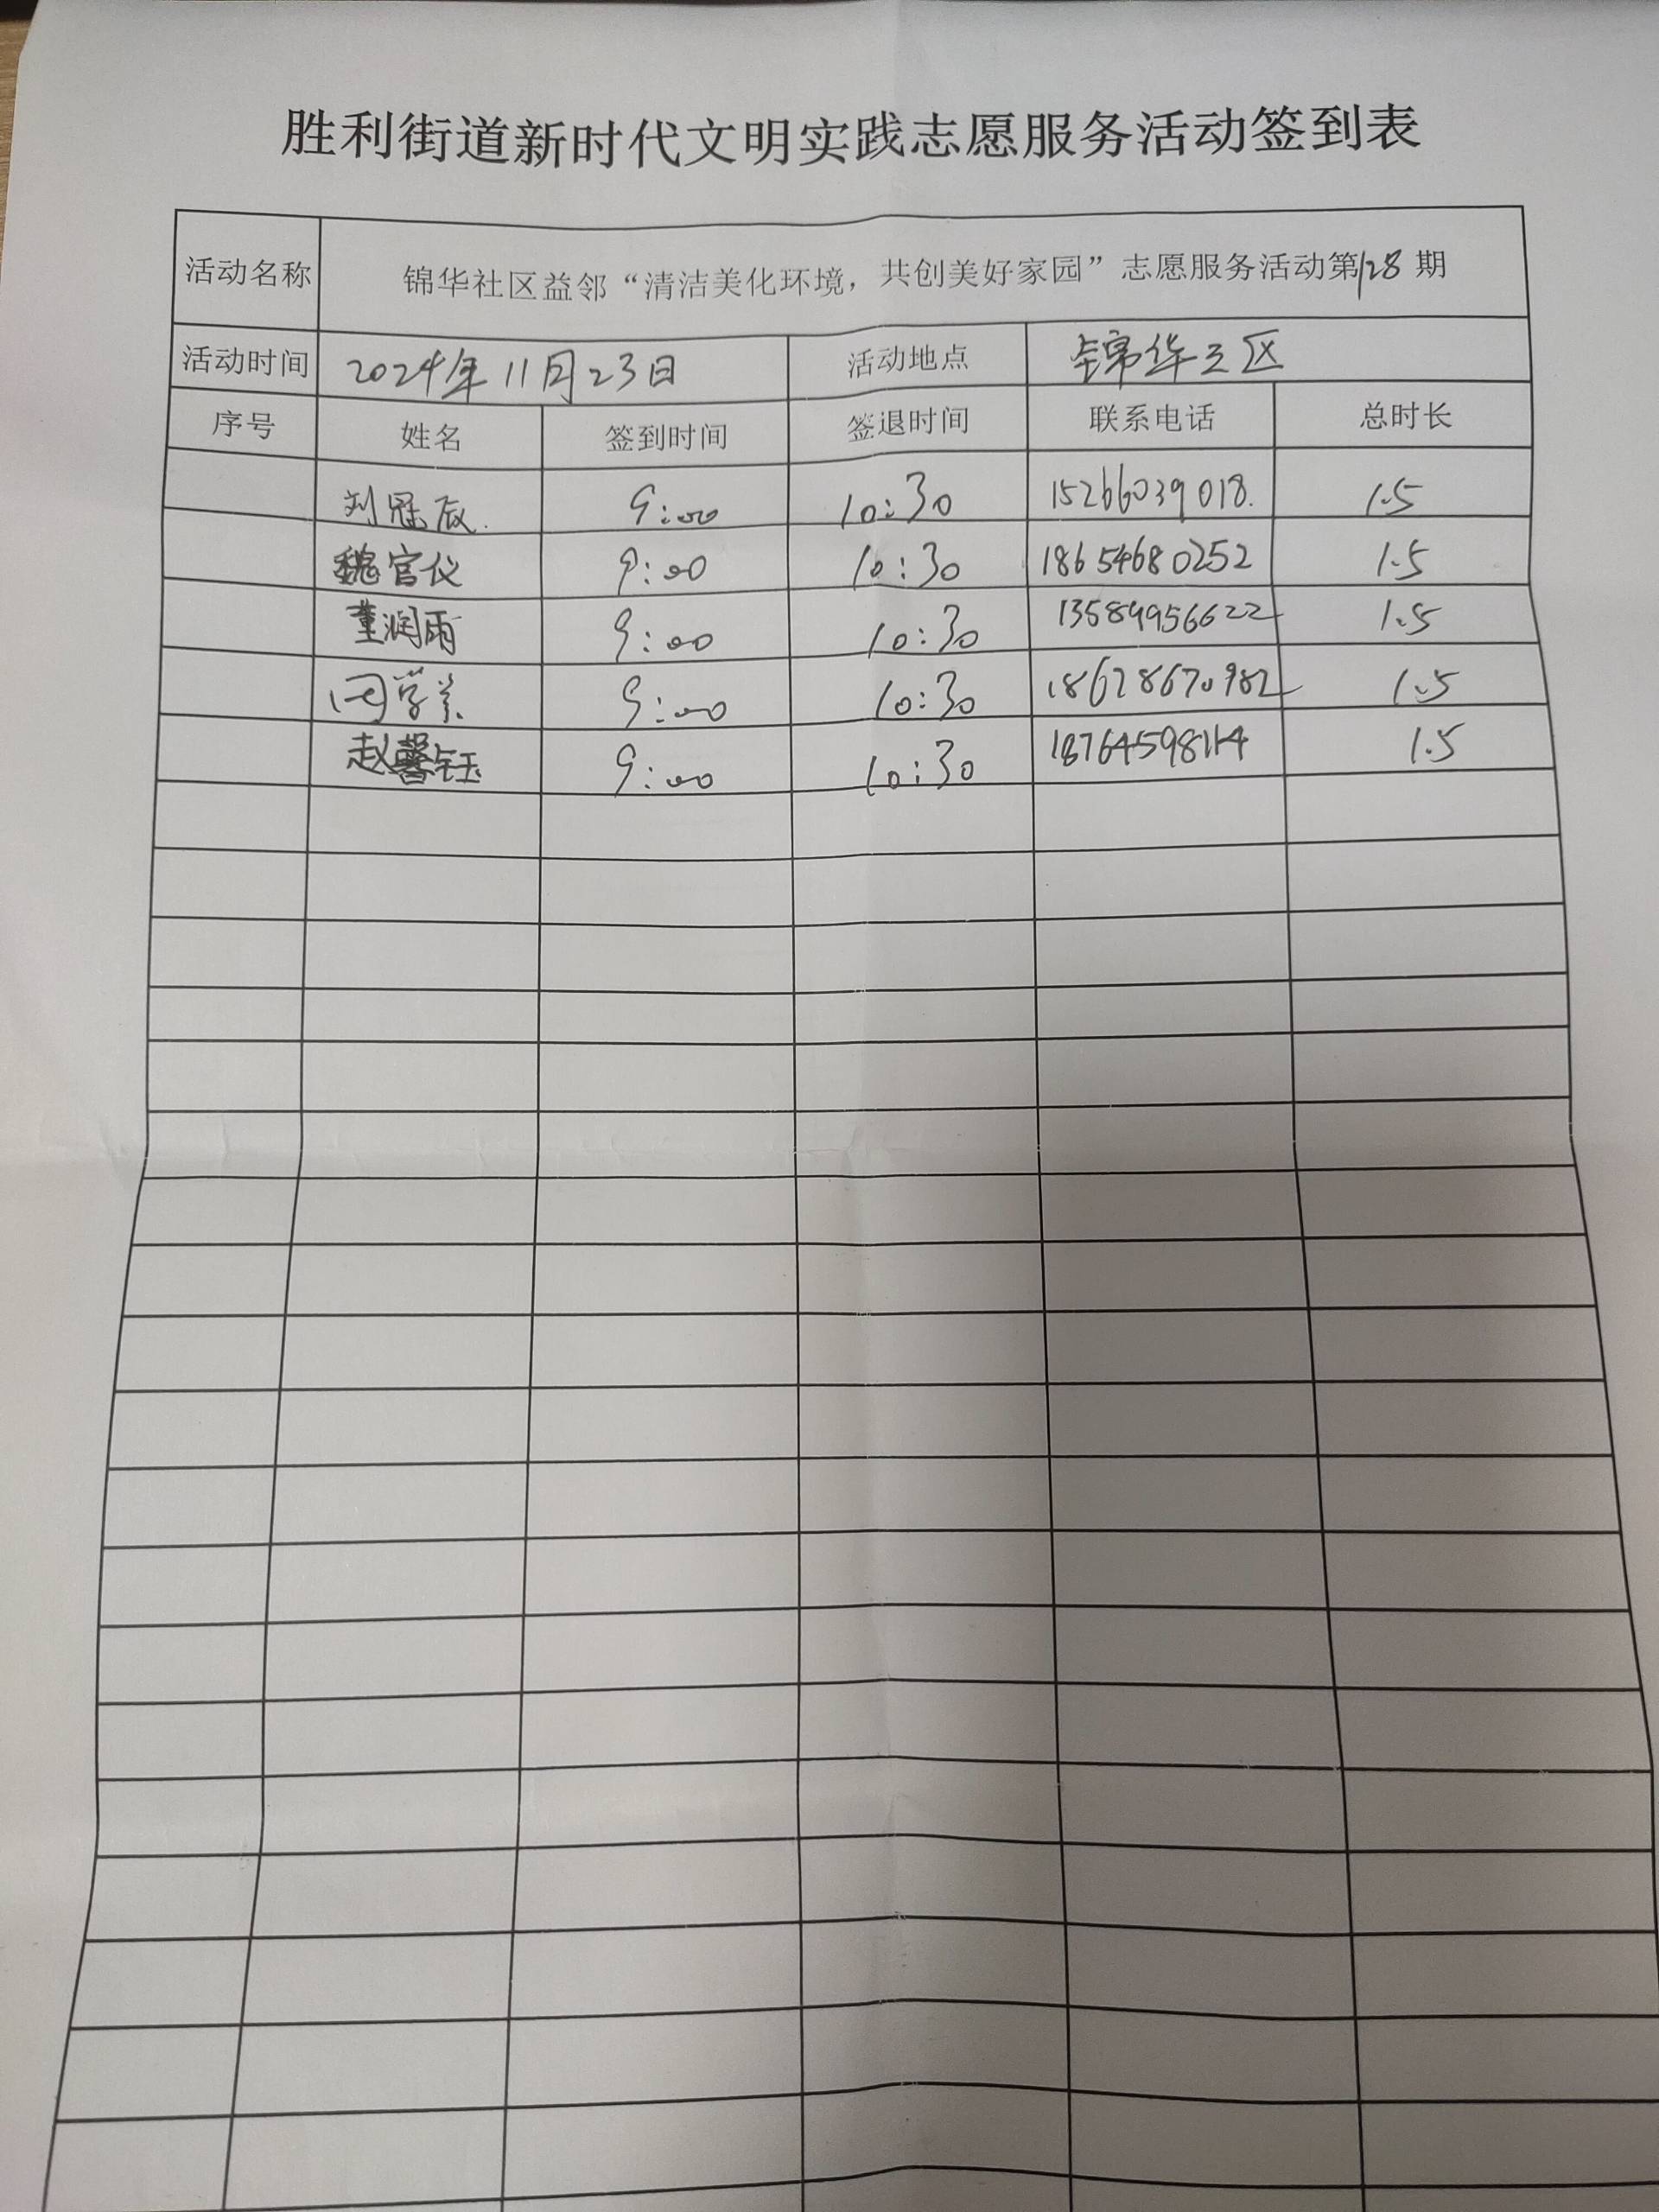 胜利街道新时代文明实践志愿服务活动签到表
活动名称 锦华社区益邻“清洁美化环境，共创美好家园”志愿服务活动第128期
活动时间 2024年11月23日 活动地点 锦华三区
序号 姓名 签到时间 签退时间 联系电话 总时长
刘冠辰. 9:00 10:30 15266039018. 1.5
魏官仪 9:00 10:30 18654680252 1.5
董润雨 9:00 10:30 13589956622 1.5
9:00 10:30 18628670982 1.5
赵馨钰 9:00 10:30 18764598114 1.5